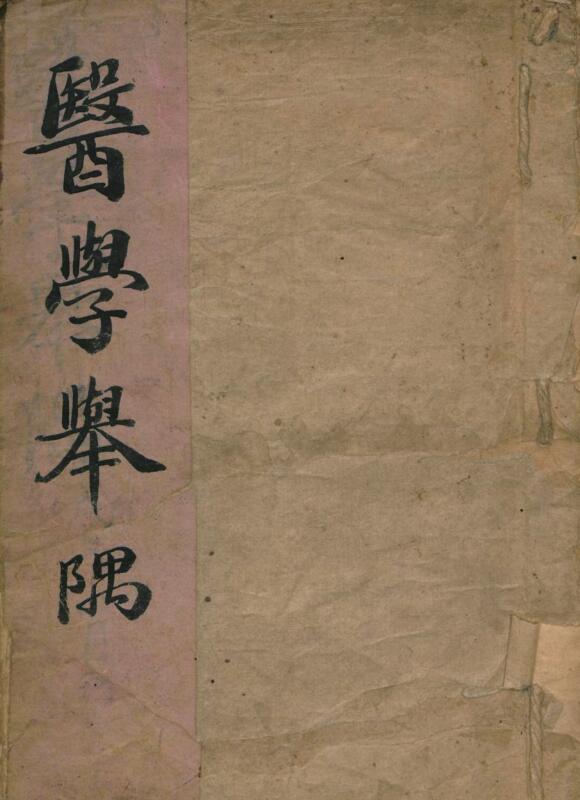 醫學舉隅